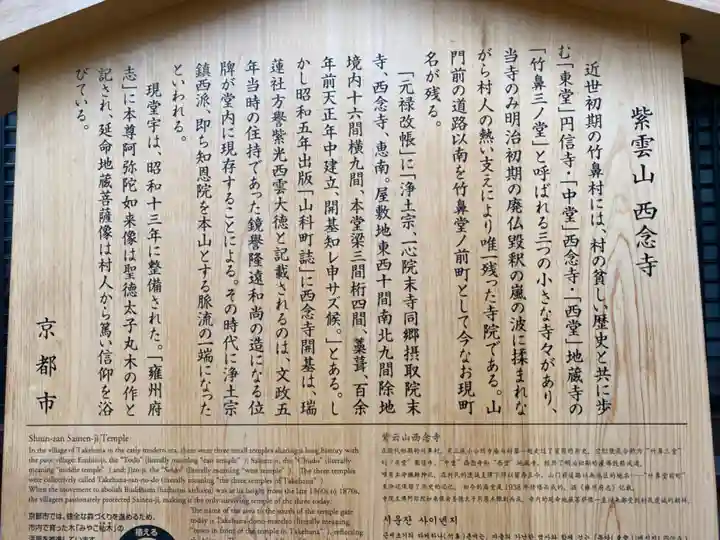 紫雲山 西念寺
近世初期の竹鼻村には、村の貧しい歴史と共に歩
む「東堂」円信寺・「中堂」西念寺・「西堂」地蔵寺の
「竹鼻三ノ堂」と呼ばれる三つの小さな寺々があり、
当寺のみ明治初期の廃仏毀釈の嵐の波に揉まれな
がら村人の熱い支えにより唯一残った寺院である。山
門前の道路以南を竹鼻堂ノ前町として今なお現町
名が残る。
「元禄改帳」に「浄土宗、一心院末寺同郷摂取院末
寺、西念寺、恵南。屋敷地東西十間南北九間除地
境内十六間横九間、本堂梁三間桁四間、藁葺、百余
年前天正年中建立、開基知レ申サズ候。」とある。し
かし昭和五年出版「山科町誌」に西念寺開基は、瑞
蓮社方誉紫光西雲大徳と記載されるのは、文政五
年当時の住持であった鏡誉隆遠和尚の造になる位
牌が堂内に現存することによる。その時代に浄土宗
鎮西派、即ち知恩院を本山とする脈流の一端になった
といわれる。
現堂宇は、昭和十三年に整備された。「雍州府
志」に本尊阿弥陀如来像は聖徳太子丸木の作と
記され、延命地蔵菩薩像は村人から篤い信仰を浴
びている。
京都市
Shiun-zan Sainen-ji Temple
In the village of Takehana in the early modern era, there were three small temples sharing a long history with
the poor village: Enshin-ji, the "Todo" (literally meaning "east temple"); Sainen-ji, the "Chudo" (literally
meaning "middle temple") and Jizo-ji, the "Saido" (literally meaning "west temple"). The three temples
were collectively called Takehana-san-no-do (literally meaning "the three temples of Takehana").
When the movement to abolish Buddhism (haibutsu kishaku) was at its height from the late 1860s to 1870s,
the villagers passionately protected Sainen-ji, making it the only surviving temple of the three.
The name of the area to the south of the temple gate
today is Takehana-dono-maecho (literally meaning
"town in front of the temple in Takehana"), reflecting
紫云山西念寺
시운잔 사이넨지
京都市では、健全な森づくりを進めるため、
市内で育った木「みやこ杣木」の
植える